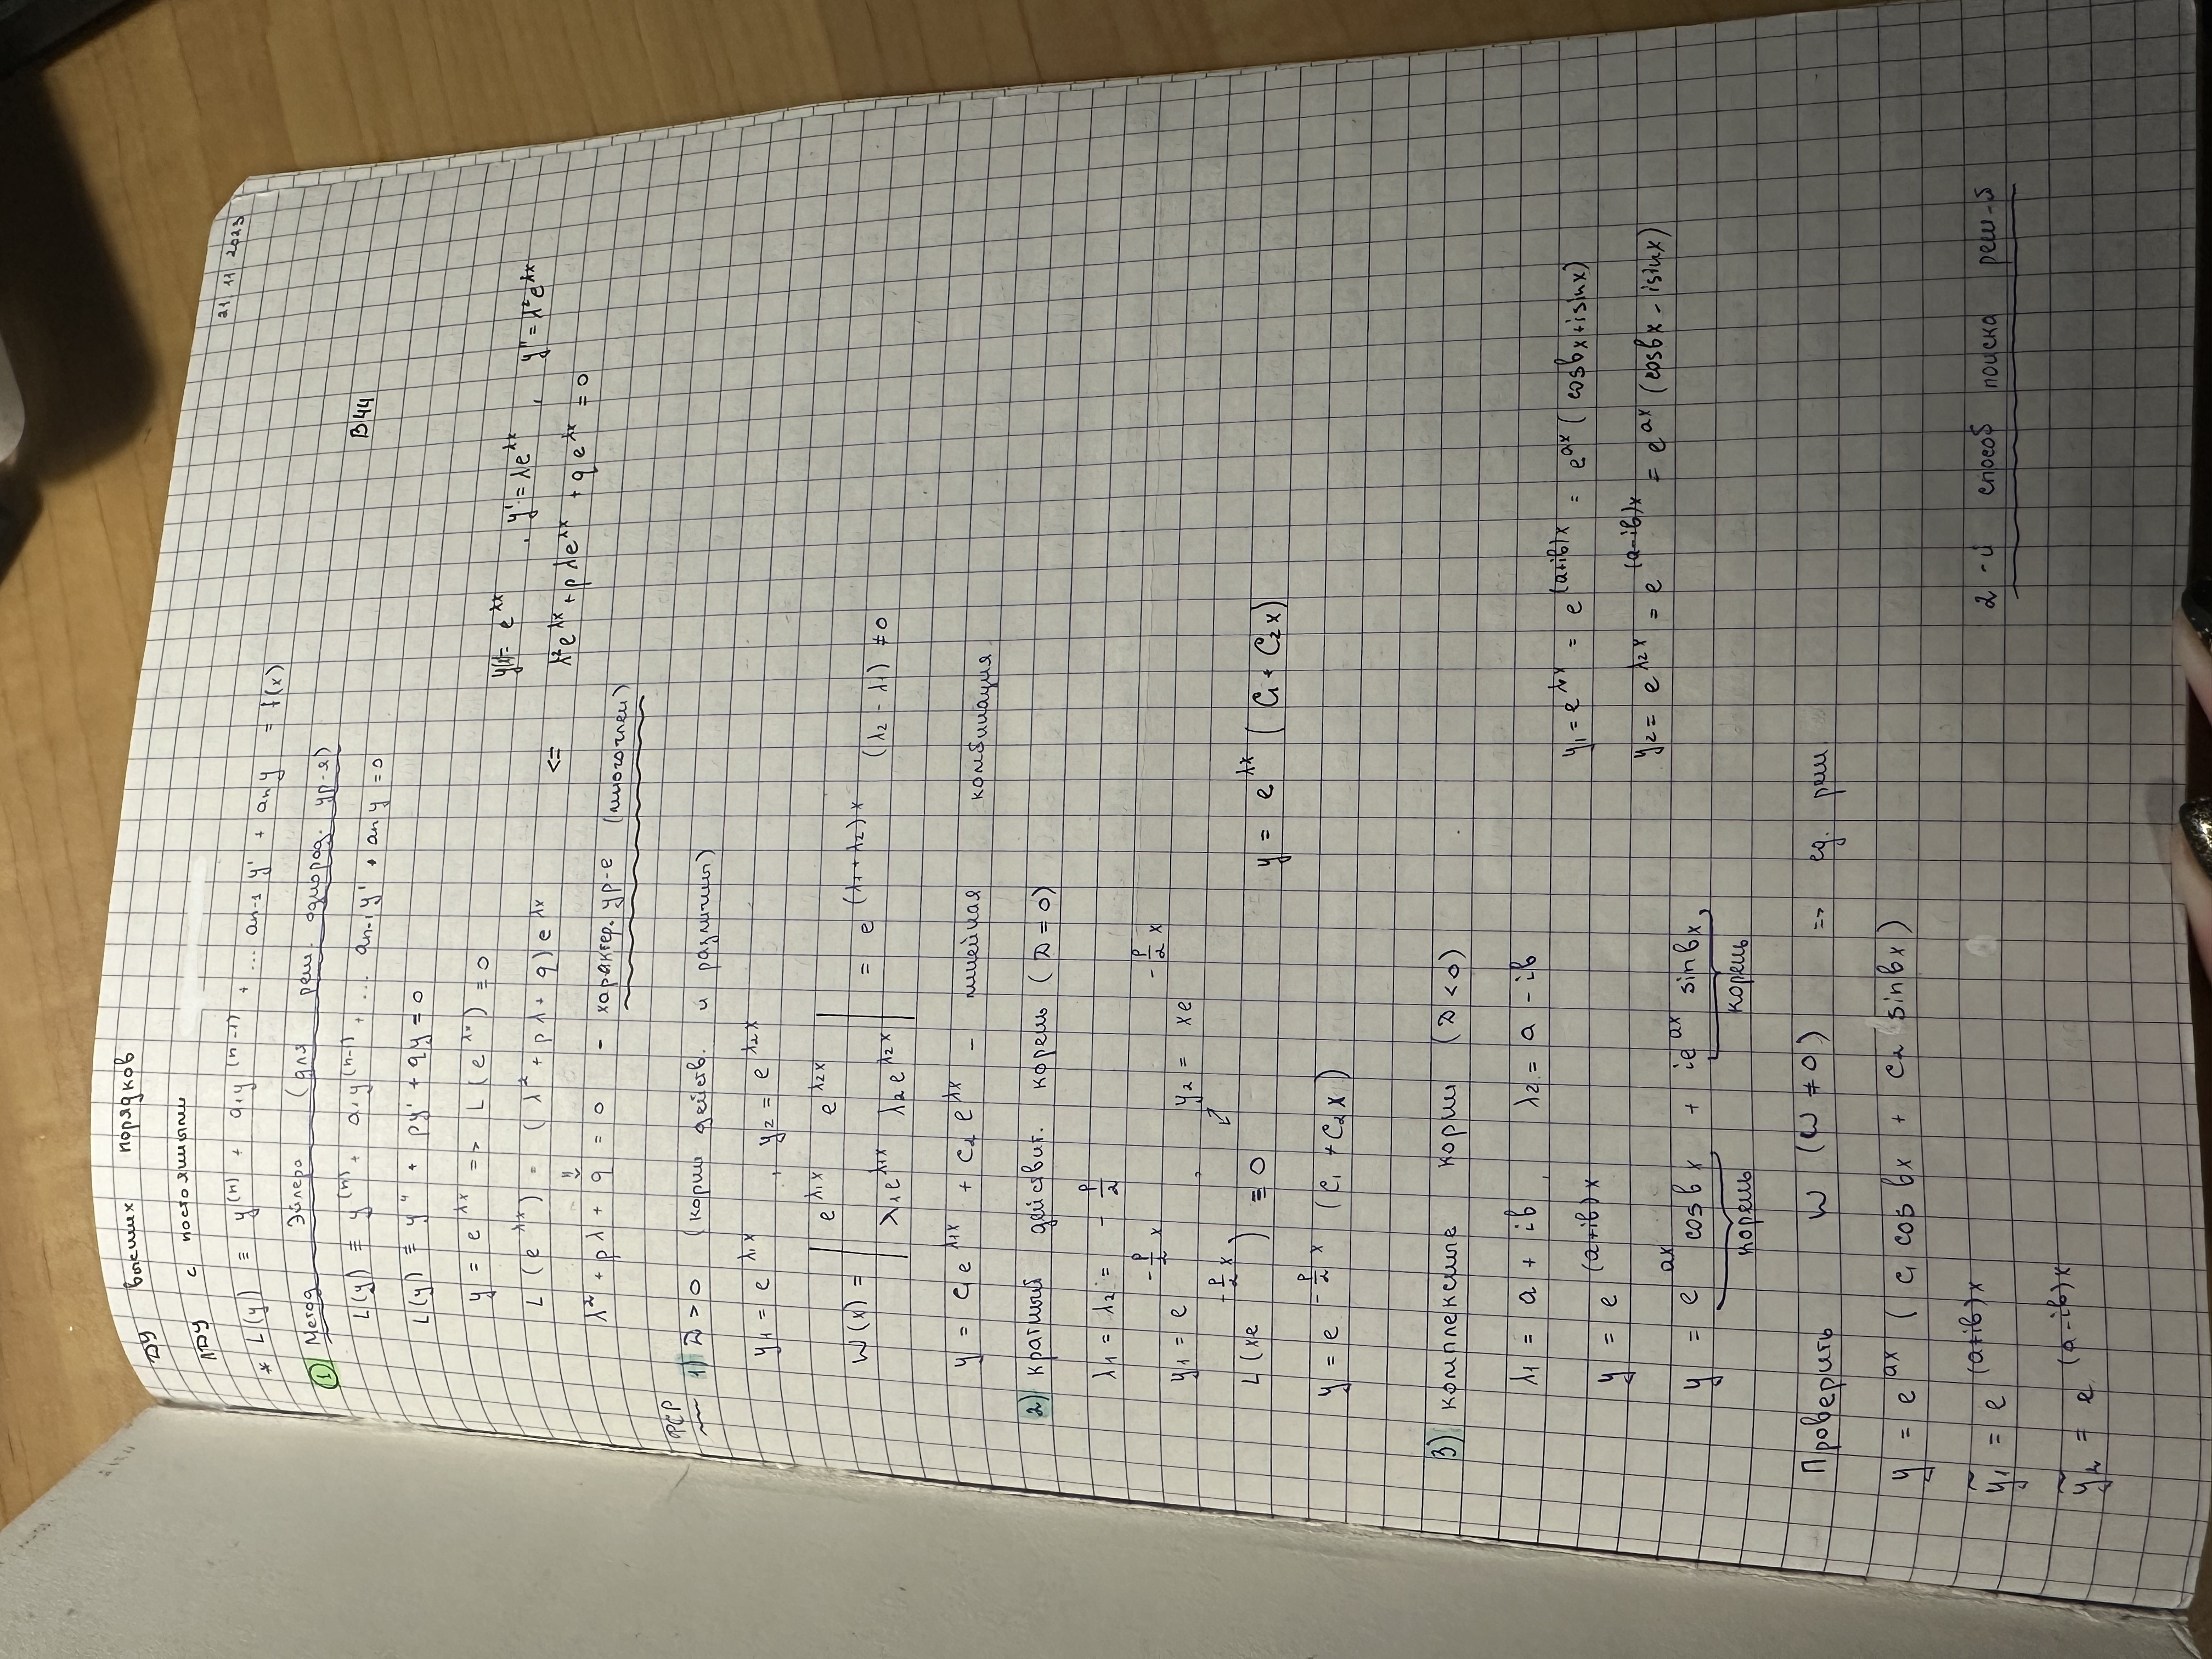 ДУ высших порядков
ЛДУ с постоянными
21 11 2023
* L(y) ≡ y⁽ⁿ⁾ + a₁y⁽ⁿ⁻¹⁾ + ... aₙ₋₁ y' + aₙ y = f(x)
① Метод Эйлера (для реш. однород. ур-я)
L(y) ≡ y⁽ⁿ⁾ + a₁y⁽ⁿ⁻¹⁾ + ... aₙ₋₁y' + aₙ y = 0
B44
L(y) ≡ y'' + py' + qy = 0
y = e^{λx} => L(e^{λx}) ≡ 0
y(x) = e^{λx}, y' = λe^{λx}, y'' = λ²e^{λx}
L(e^{λx}) = (λ² + pλ + q) e^{λx} <= λ²e^{λx} + pλe^{λx} + qe^{λx} = 0
λ² + pλ + q = 0 - характер. ур-е (многочлен)
ФСР
1) D > 0 (корни действ. и различны)
y₁ = e^{λ₁x}, y₂ = e^{λ₂x}
W(x) = | e^{λ₁x} e^{λ₂x} |
| λ₁e^{λ₁x} λ₂e^{λ₂x} | = e^{(λ₁+λ₂)x} (λ₂ - λ₁) ≠ 0
y = C₁e^{λ₁x} + C₂e^{λx} - линейная комбинация
2) кратный действит. корень (D = 0)
λ₁ = λ₂ = - p/2
y₁ = e^{-p/2 x}, y₂ = xe^{-p/2 x}
L(xe^{-p/2 x}) ≡ 0
y = e^{λx} (C₁ + C₂x)
y = e^{-p/2 x} (C₁ + C₂x)
3) комплексные корни (D < 0)
λ₁ = a + ib, λ₂ = a - ib
y₁ = e^{λ₁x} = e^{(a+ib)x} = e^{ax} (cosbx + isinx)
y = e^{(a+ib)x}
y₂ = e^{λ₂x} = e^{(a-ib)x} = e^{ax} (cosbx - isinx)
y = e^{ax} cosbx + ie^{ax} sinbx,
корень корень
Проверить W (W ≠ 0) => ед. реш
y = e^{ax} (C₁ cosbx + C₂ sinbx)
ỹ₁ = e^{(a+ib)x}
2-й способ поиска реш-й
ỹ₂ = e^{(a-ib)x}